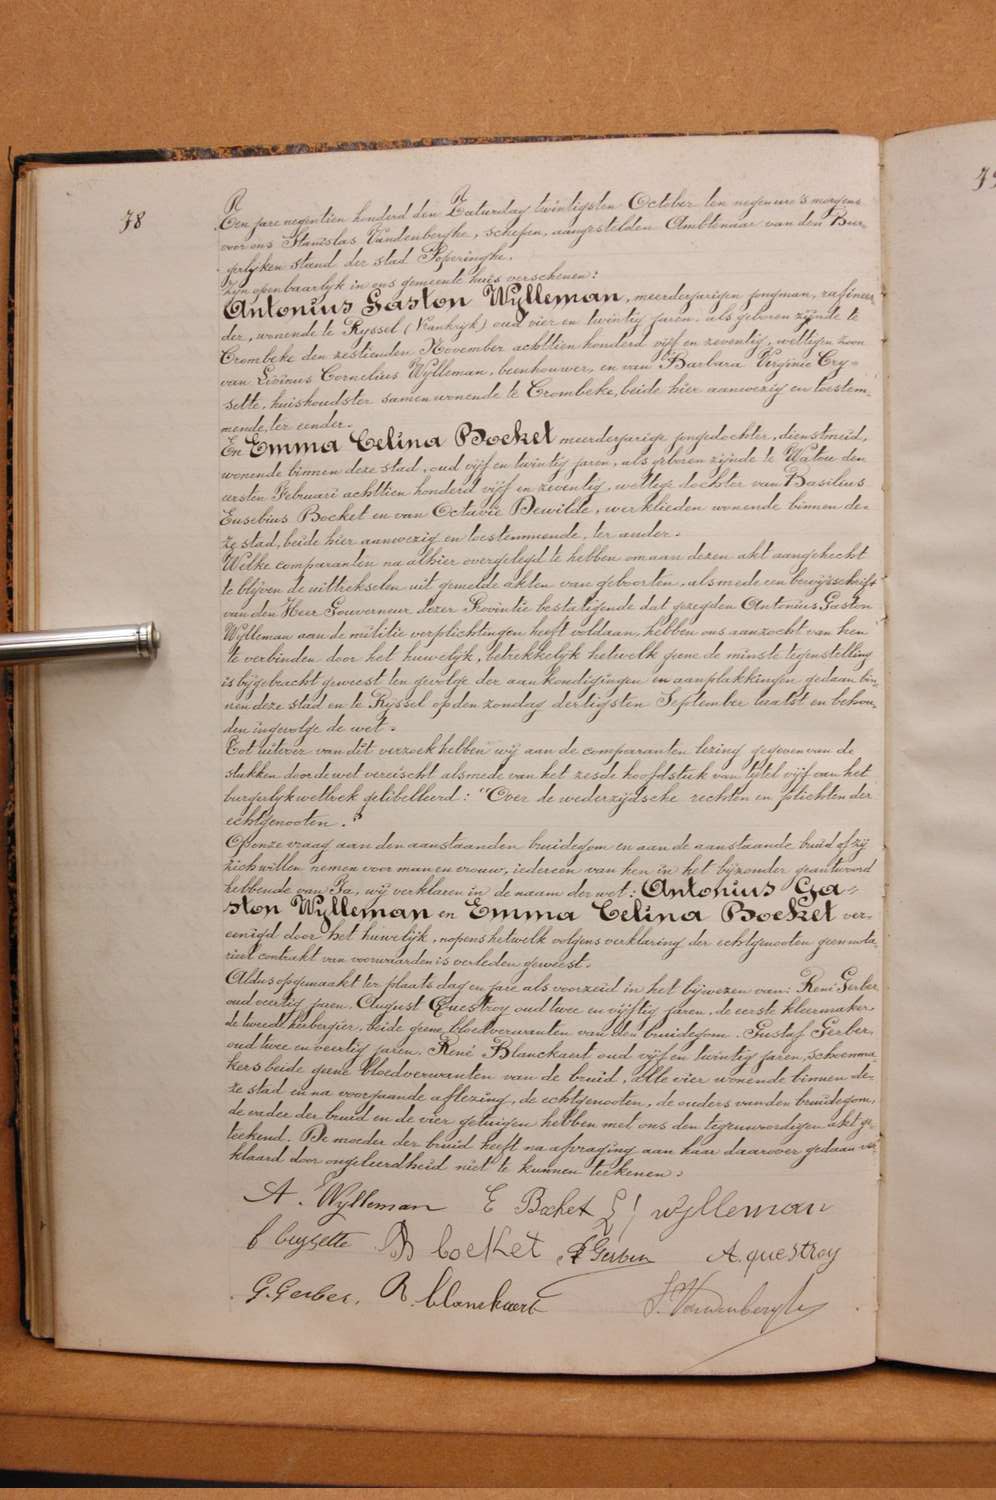 78
Ten jare negentien honderd den Zaturdag twintigsten October ten negen ure 's morgens
voor ons Stanislas Vandenberghe, schepen, aangestelden Ambtenaar van den Bur-
gerlyken stand der stad Poperinghe.
Zyn openbaarlyk in ons gemeente huis verschenen:
Antonius Gaston Wylleman, meerderjarigen jongman, rafineer
der, wonende te Ryssel (Frankrijk) oud vier en twintig jaren, als geboren zijnde te
Crombeke den zestienden November achttien honderd vijf en zeventig, wettigen zoon
van Livinus Cornelius Wylleman, beenhouwer, en van Barbara Virginie Cey-
sette, huishoudster samen wonende te Crombeke, beide hier aanwezig en toestem-
mende, ter eender.
En Emma Celina Bocket meerderjarige jongedochter, dienstmeid,
wonende binnen deze stad, oud vijf en twintig jaren, als geboren zijnde te Watou den
eersten Februari achttien honderd vijf en zeventig, wettige dochter van Basilius
Eusebius Bocket en van Octavie Dewilde, werklieden wonende binnen de-
ze stad, beide hier aanwezig en toestemmende, ter ander.
Welke comparanten na alhier overgelegd te hebben om aan dezen akt aangehecht
te blijven de uittrekselen uit gemelde akten van geboorten, alsmede een bewijsschrift
van den Heer Gouverneur dezer Provintie bestatigende dat gezegden Antonius Gaston
Wylleman aan de militie verplichtingen heeft voldaan, hebben ons aanzocht van hen
te verbinden door het huwelijk, betrekkelijk hetwelk geene de minste tegenstelling
is bijgebracht geweest ten gevolge der aankondigingen en aanplakkingen gedaan bin-
nen deze stad en te Ryssel op den zondag dertigsten September laatst en behou-
den ingevolge de wet.
Tot uitever van dit verzoek hebben wij aan de comparanten lezing gegeven van de
stukken door de wet vereischt alsmede van het zesde hoofdstuk van tytel vijf van het
burgerlyk wetboek gelibelleerd: "Over de wederzijdsche rechten en plichten der
echtgenooten."
Op onze vraag aan den aanstaanden bruidegom en aan de aanstaande bruid of zij
zich willen nemen voor man en vrouw, iedereen van hen in het bijzonder geantwoord
hebbende van Ja, wij verklaren in de naam der wet: Antonius Ga-
ston Wylleman en Emma Celina Bocket ver-
eenigd door het huwelijk, nopens hetwelk volgens verklaring der echtgenooten geen nota-
rieel contrakt van voorwaarden is verleden geweest.
Aldus opgemaakt ter plaats dag en jare als voorzeid in het bijwezen van: René Gerber
oud veertig jaren, August Questroy oud twee en vijftig jaren, de eerste kleermaker,
de tweede herbergier, beide geene bloedverwanten van den bruidegom. Gustaf Gerber,
oud twee en veertig jaren, René Blanckaert oud vijf en twintig jaren, schoenma-
kers beide geene bloedverwanten van de bruid, alle vier wonende binnen de-
ze stad en na voorgaande aflezing, de echtgenooten, de ouders van den bruidegom,
de vader der bruid en de vier getuigen hebben met ons den tegenwoordigen akt ge-
teekend. De moeder der bruid heeft na afvraging aan haar daarover gedaan ver-
klaard door ongeleerdheid niet te kunnen teekenen.
A. Wylleman E Bocket L wylleman
Ceysette B bocket R Gerber A. questroy
G. Gerber. R. blanckaert S. Vandenberghe